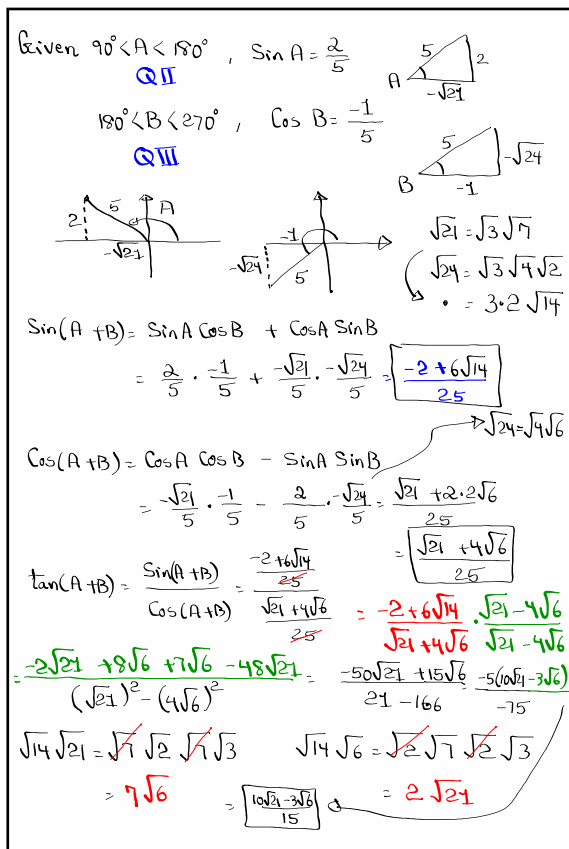 Given 90° < A < 180° , Sin A = 2/5
QII
180° < B < 270° , Cos B = -1/5
QIII
A 5 2 -√21
B 5 -√24 -1
2 5 A -√21
-1 -√24 5
√21 = √3 √7
√24 = √3 √4 √2
• = 3·2 √14
Sin(A+B) = SinA CosB + CosA SinB
= 2/5 · -1/5 + -√21/5 · -√24/5 = (-2 + 6√14)/25
√24 = √4 √6
Cos(A+B) = CosA CosB - SinA SinB
= -√21/5 · -1/5 - 2/5 · -√24/5 = (√21 + 2·2√6)/25
= (√21 + 4√6)/25
tan(A+B) = Sin(A+B)/Cos(A+B) = ((-2+6√14)/25)/((√21+4√6)/25) = (-2+6√14)/(√21+4√6) · (√21-4√6)/(√21-4√6)
= (-2√21 + 8√6 + 7√6 - 48√21)/((√21)² - (4√6)²) = (-50√21 + 15√6)/(21 - 166) = -5(10√21 - 3√6)/-75
√14 √21 = √7 √2 √7 √3
√14 √6 = √2 √7 √2 √3
= 7√6
= 2√21
= (10√21 - 3√6)/15